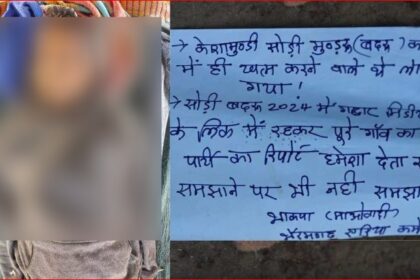 → केशामुण्डी सोड़ी मुण्ड्रा (बदरू) क
में ही खत्म करने वाले थे
गया!
→ सोड़ी बदरू 2024 में गद्दार
के लिंक में रहकर पुरे गाँव का
पार्टी का रिपोर्ट हमेशा देता
समझाने पर भी नही समझा
भाकपा (माओवादी)
भैरमगढ़ एरिया कमे